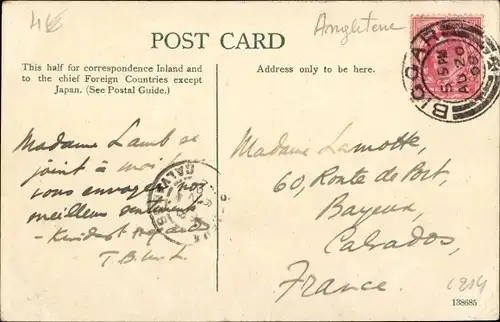 4k
Angleterre
POST CARD
This half for correspondence Inland and
to the chief Foreign Countries except
Japan. (See Postal Guide.)
Address only to be here.
5.15 PM
AU 20
08
Madame Lamb se
joint à moi
vous envoyer nos
meilleurs sentiments
- Kindest regards
T.B.
CALVADOS
Madame Lamotte,
60, Route de Port,
Bayeux,
Calvados,
France.
138685